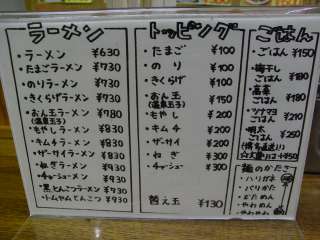 ラーメン
・ラーメン ¥630
・たまごラーメン ¥730
・のりラーメン ¥730
・きくらげラーメン ¥730
・おん玉ラーメン ¥730
(温泉玉子)
・もやしラーメン ¥830
・キムチラーメン ¥830
・ザーサイラーメン ¥830
・ねぎラーメン ¥930
・チャシューメン ¥930
・黒とんこつラーメン ¥930
・トムヤムとんこつ ¥930
トッピング
・たまご ¥100
・のり ¥100
・きくらげ ¥100
・おん玉 ¥100
(温泉玉子)
・もやし ¥200
・キムチ ¥200
・ザーサイ ¥200
・ねぎ ¥300
・チャシュー ¥300
替え玉 ¥130
ごはん
・ごはん ¥150
・梅干し
ごはん ¥180
・高菜
ごはん ¥180
・ツナマヨ
ごはん ¥210
・明太
ごはん ¥250
麺のかたさ
・ハリガネ
・バリかた
・かため
・やわめ